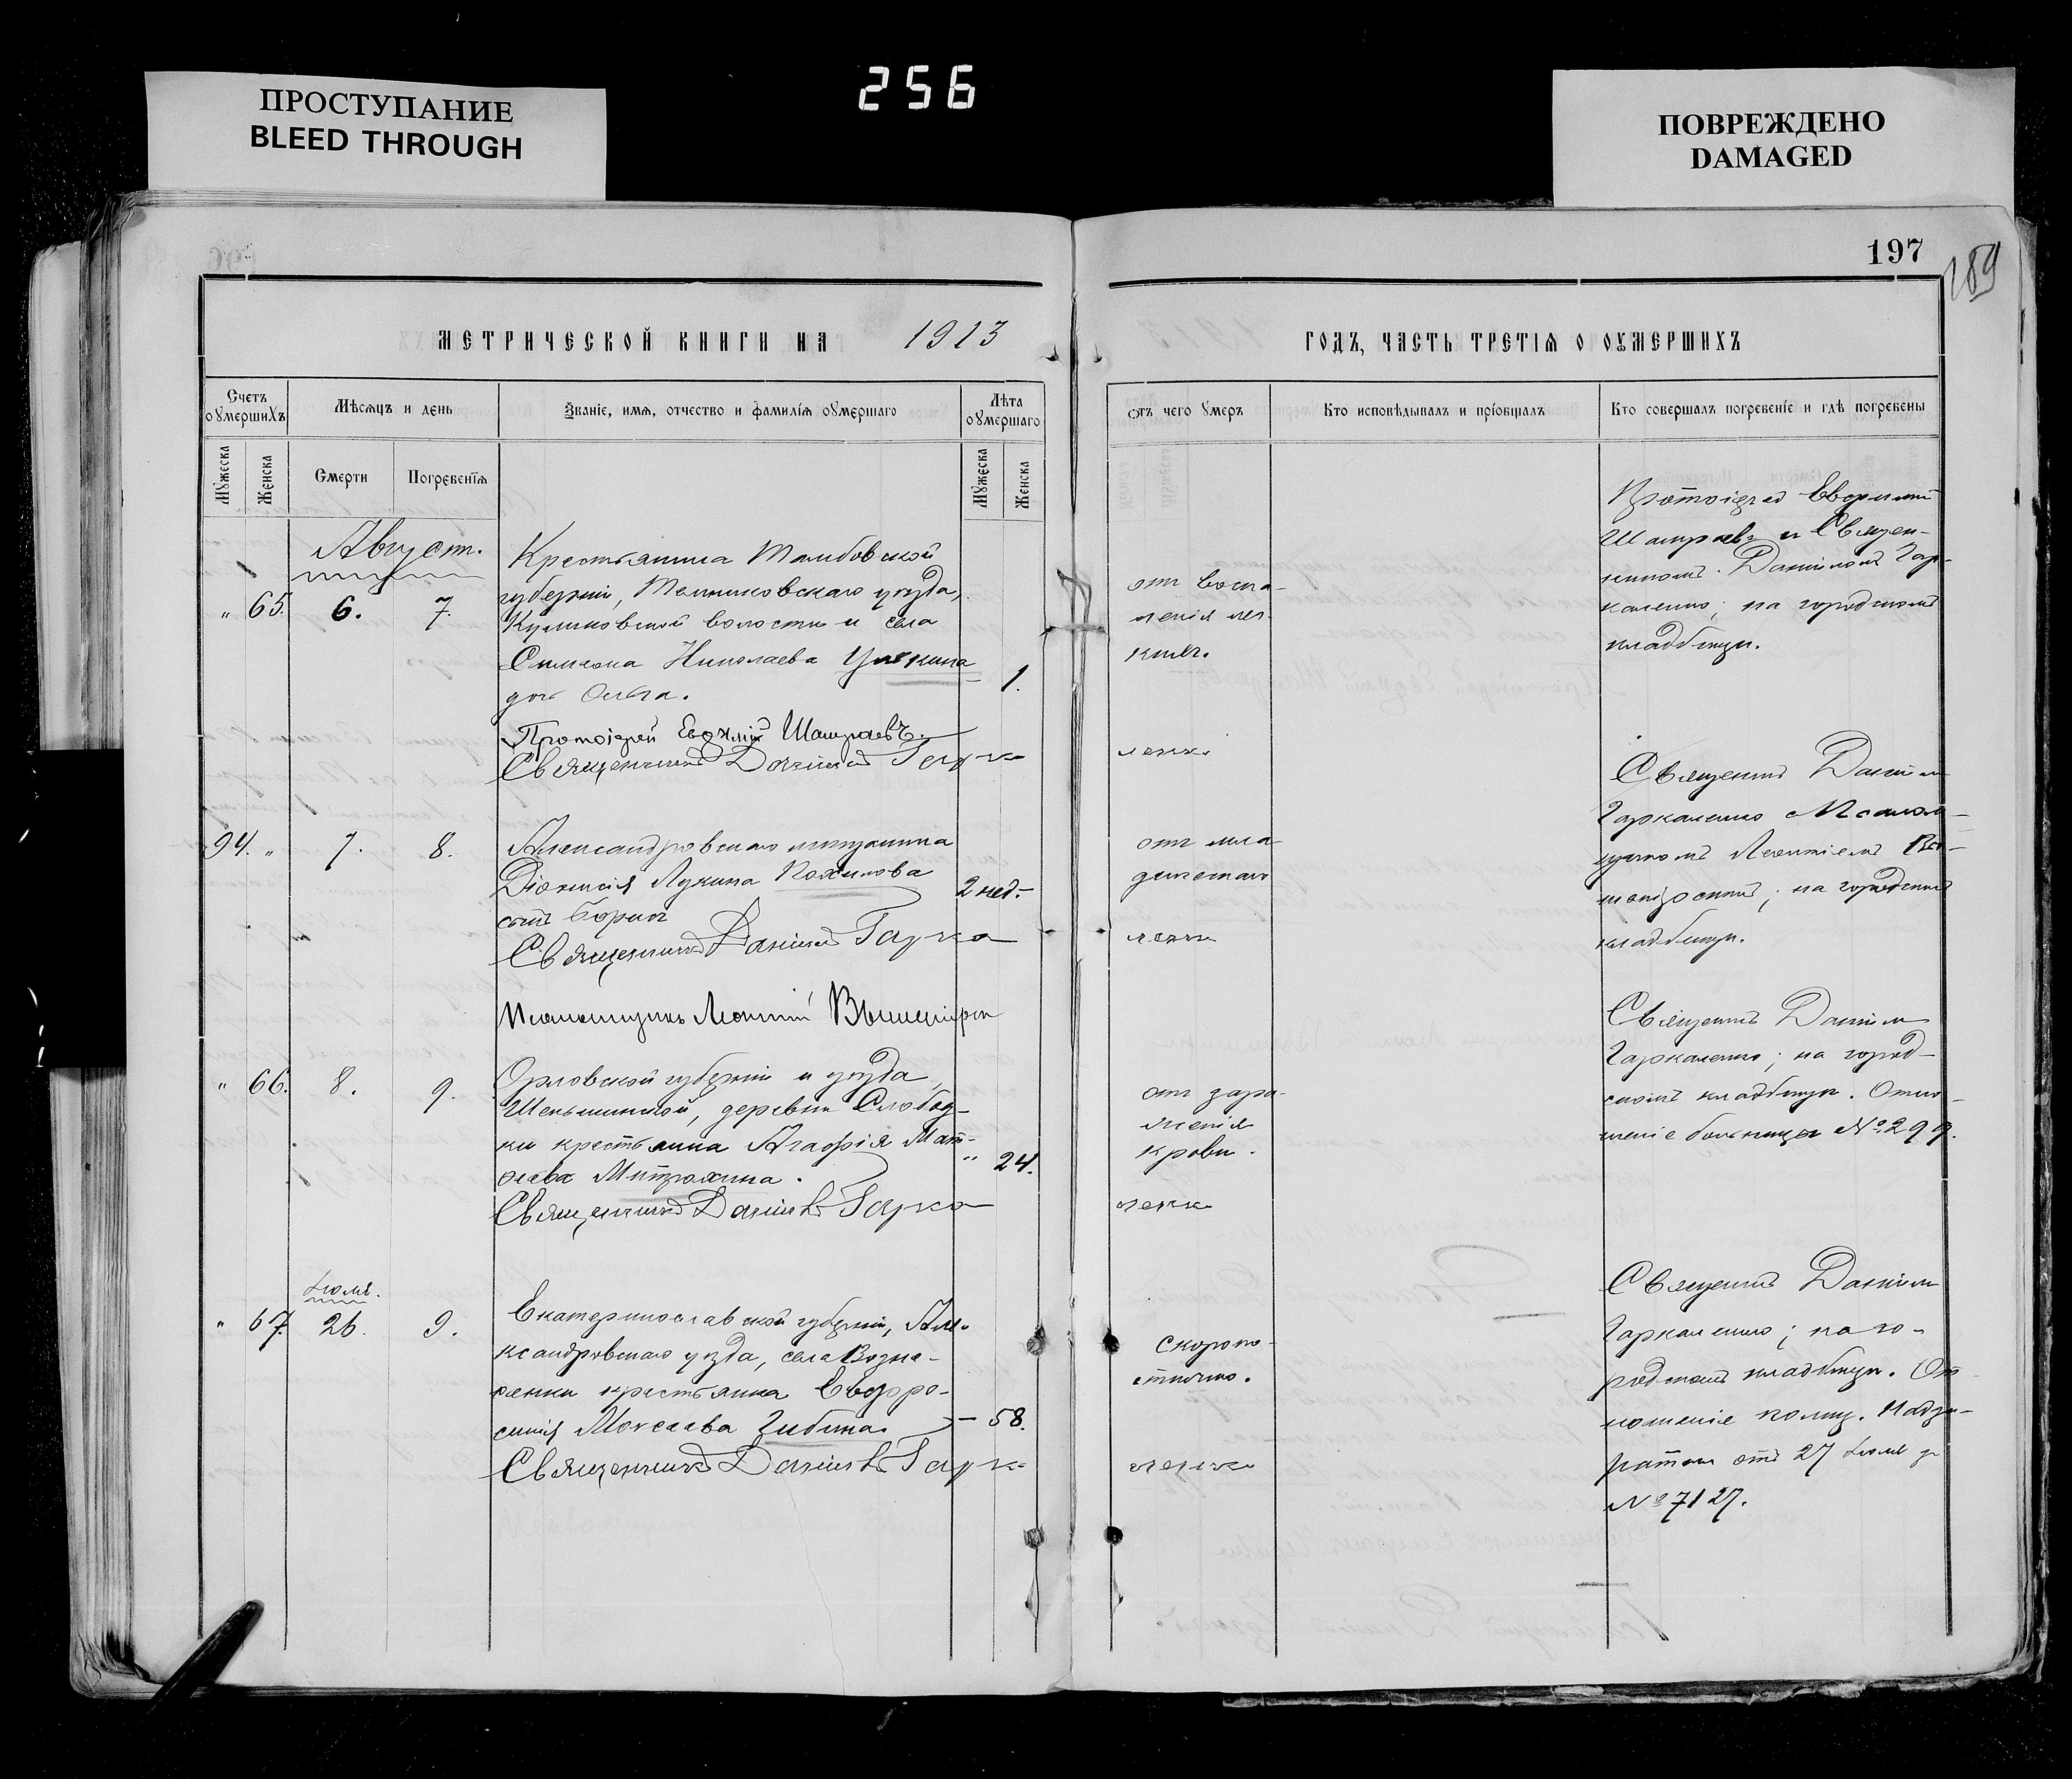 256
ПРОСТУПАНИЕ
BLEED THROUGH
ПОВРЕЖДЕНО
DAMAGED
197
189
МЕТРИЧЕСКОЙ КНИГИ НА 1913
ГОДЪ, ЧАСТЬ ТРЕТІѦ О ОУМЕРШИХЪ
Счетъ оумершихъ
Мѣсяцъ и день
Званіе, имя, отчество и фамилія оумершаго
Лѣта оумершаго
Отъ чего умеръ
Кто исповѣдывалъ и пріобщалъ
Кто совершалъ погребеніе и гдѣ погребены
Мужеска
Женска
Смерти
Погребенія
Мужеска
Женска
Август.
" 65. 6. 7.
Крестьянина Тамбовской
губерніи, Темниковскаго уѣзда,
Куликовской волости и села
Симеона Николаева
дочь Ольга.
1.
Протоіерей Евѳимій Шамраевъ.
Священникъ Даніилъ Гарка
от воспа-
ленія лег-
кихъ.
ленко
Протоіерей Евѳимій
Шамраевъ и Священ-
никомъ Даніиломъ Гар-
каленко; на городскомъ
кладбищѣ.
94. " 7. 8.
Александровскаго мѣщанина
Діонисія Лукина
сынъ Борисъ
2 нед. -
Священникъ Даніилъ Гарка
Псаломщикъ Леонтій
от мла-
денческаго
ленко
Священникъ Даніилъ
Гаркаленко Псалом-
щикомъ Леонтіемъ
на городскомъ
кладбищѣ.
" 66. 8. 9.
Орловской губерніи и уѣзда,
деревни Слобод-
ки крестьянка Агафія Мат-
ѳеева Митрохина.
" 24.
Священникъ Даніилъ Гарка
от зара-
женія
крови.
ленко
Священникъ Даніилъ
Гаркаленко; на город-
скомъ кладбищѣ. Отно-
шеніе больницы № 299.
Іюль.
" 67. 26. 9.
Екатеринославской губерніи, Але-
ксандровскаго уѣзда, села Возне-
сенки крестьянка Евфро-
синія Моисеева Губина.
- 58.
Священникъ Даніилъ Гарка
скоропо-
стижно.
ленко
Священникъ Даніилъ
Гаркаленко; на го-
родскомъ кладбищѣ. От-
ношеніе полиц. Надзи-
рателя отъ 27 Іюля за
№ 7127.